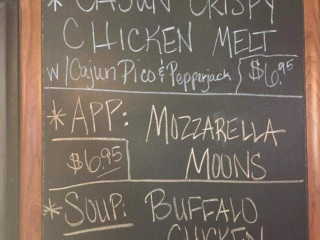 * CAJUN CRISPY
CHICKEN MELT
w/Cajun Pico & Pepperjack $6.95
* APP: MOZZARELLA
$6.95 MOONS
* SOUP: BUFFALO
CHICKEN